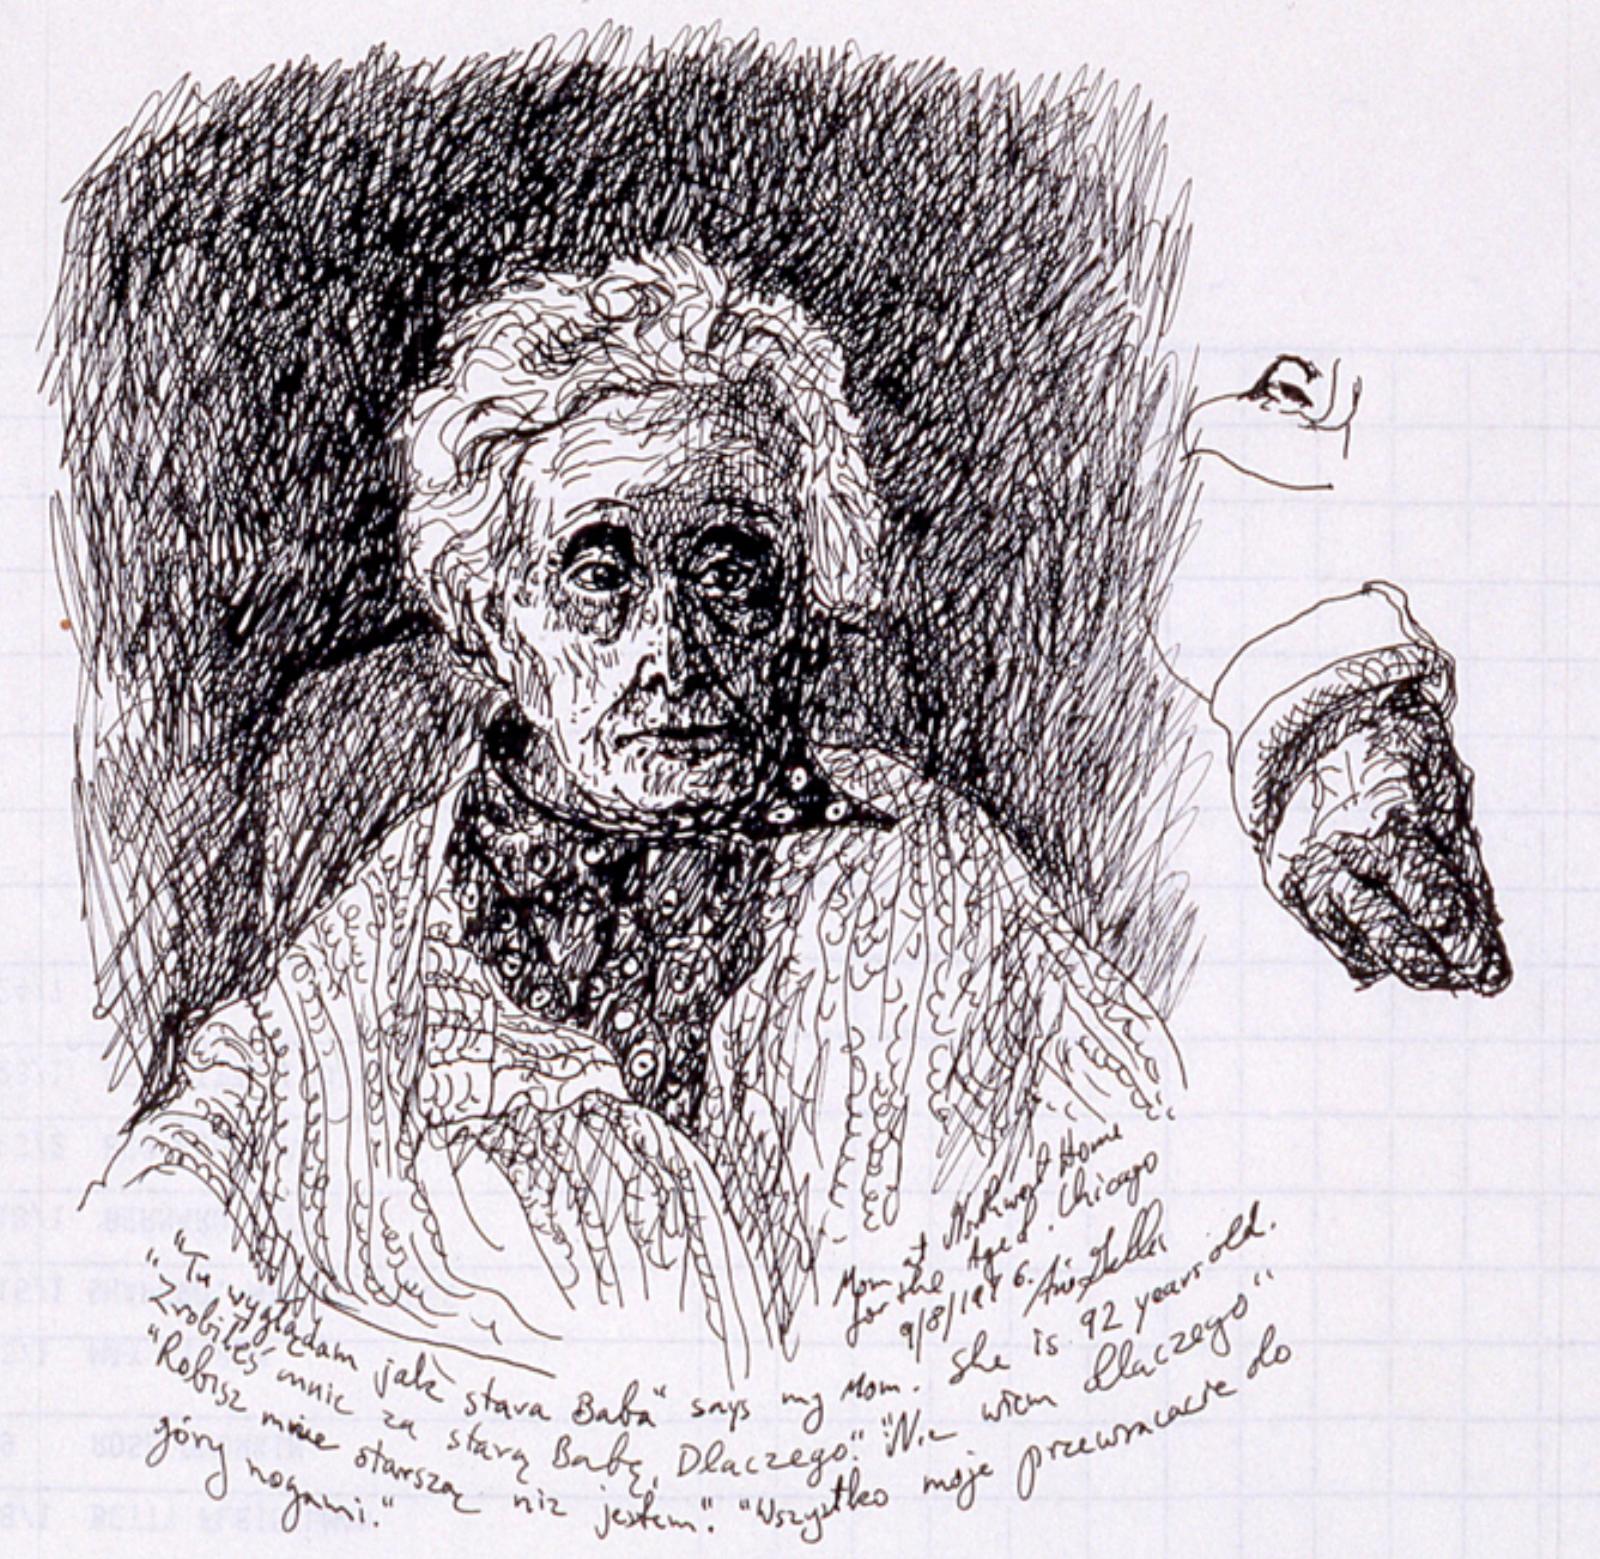 Mom at Northwest Home
for the Aged. Chicago
"Tu wyglądam jak stara Baba" says my Mom. She is 92 years old.
"Zrobiłeś mnie za starą Babę, Dlaczego." "Nie wiem dlaczego"
"Robisz mnie starszą niz jestem." "Wszystko moje przewracacie do
góry nogami."